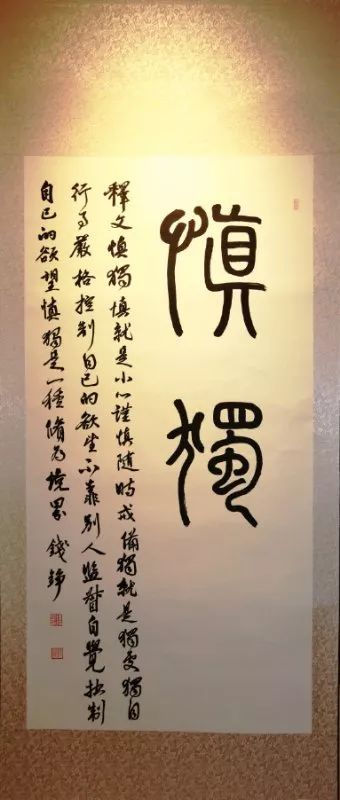 慎獨
釋文慎獨慎就是小心謹慎隨時戒備獨就是獨處獨自
行事嚴格控制自己的欲望不靠別人監督自覺控制
自己的欲望慎獨是一種脩為境界 錢錚